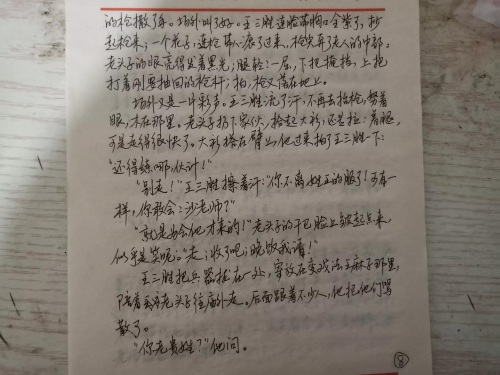 的枪撒了手。场外叫了好。王三胜连脸带胸口全紫了,抄
起枪来;一个花子,连枪带人滚了过来,枪尖奔了老人的中部。
老头子的眼亮得发着黑光;腿轻轻一屈,下把掩裆,上把
打着刚要抽回的枪杆;拍,枪又落在地上。
场外又是一片彩声。王三胜流了汗,不再去拾枪,努着
眼,木在那里。老头子扔下家伙,拾起大衫,还是拉着腿,
可是走得很快了。大衫搭在臂上,他过来拍了王三胜一下:
“还得练哪,伙计!”
“别走!”王三胜擦着汗:“你不离,姓王的服了!可有一
样,你敢会会沙老师?”
“就是为会他才来的!”老头子的干巴脸上皱起点来,
似乎是笑呢。“走;收了吧;晚饭我请!”
王三胜把兵器拢在一处,寄放在变戏法王麻子那里,
陪着老头子往庙外走。后面跟着不少人,他把他们骂
散了。
“你老贵姓?”他问。
8